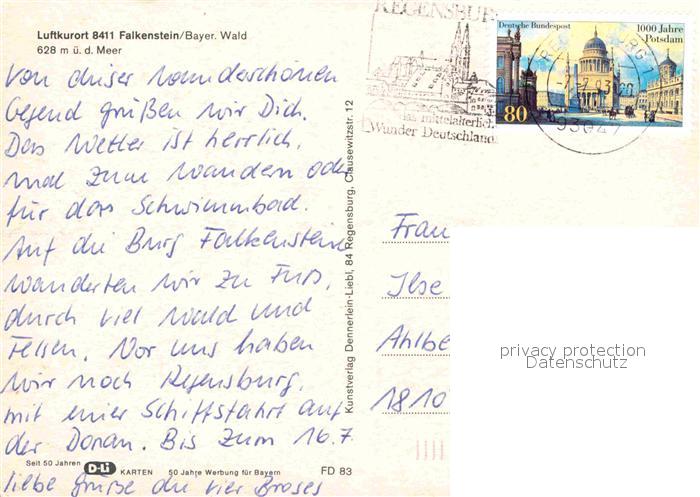 Luftkurort 8411 Falkenstein/Bayer. Wald
628 m ü. d. Meer
Von dieser wunderschönen
Gegend grüßen wir Dich.
Das Wetter ist herrlich,
mal zum Wandern oder
für das Schwimmbad.
Auf die Burg Falkenstein
wanderten wir zu Fuß,
durch viel Wald und
Felsen. Vor uns haben
wir noch Regensburg,
mit einer Schiffsfahrt auf
der Donau. Bis zum 16.7.
liebe Grüße die vier
Seit 50 Jahren D-Li KARTEN 50 Jahre Werbung für Bayern FD 83
Kunstverlag Dennerlein-Liebl, 84 Regensburg, Clausewitzstr. 12
REGENSBURG
Das mittelalterliche
Wunder Deutschlands
93047
Deutsche Bundespost
1000 Jahre
Potsdam
80
Frau
Ilse
Ahlbe
1810
privacy protection
Datenschutz